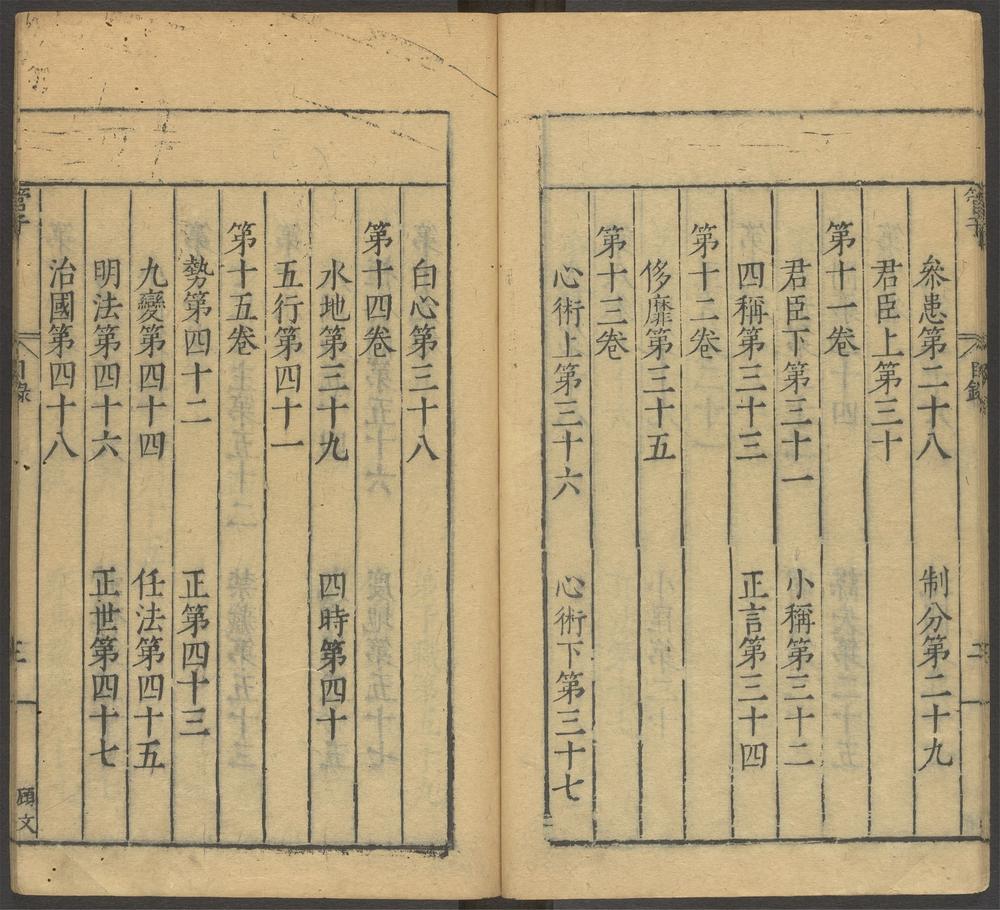 叅患第二十八　制分第二十九
君臣上第三十
第十一卷
君臣下第三十一　小稱第三十二
四稱第三十三　正言第三十四
第十二卷
侈靡第三十五
第十三卷
心術上第三十六　心術下第三十七
白心第三十八
第十四卷
水地第三十九　四時第四十
五行第四十一
第十五卷
勢第四十二　正第四十三
九變第四十四　任法第四十五
明法第四十六　正世第四十七
治國第四十八
管子　目錄　三　顧文